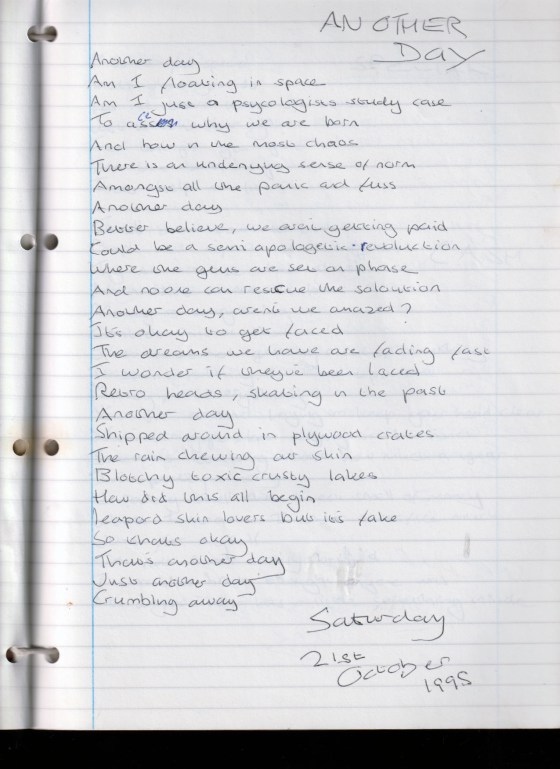 ANOTHER
DAY
Another day
Am I floating in space
Am I just a psycologists study case
To assess why we are born
And how in the most chaos
There is an underying sense of norm
Amongst all the panic and fuss
Another day
Better believe, we arnt getting paid
Could be a semi apologetic revoluction
Where the guns are set on phase
And noone can rescue the soloution
Another day, arent we amazed?
It's okay to get faced
The dreams we have are fading fast
I wonder if theyve been laced
Retro heads, skating in the past
Another day
Shipped around in plywood crates
The rain chewing our skin
Blotchy toxic crusty lakes
How did this all begin
Leapord skin lovers but it's fake
So thats okay
Thats another day
Just another day
Crumbling away
Saturday
21st
October
1995